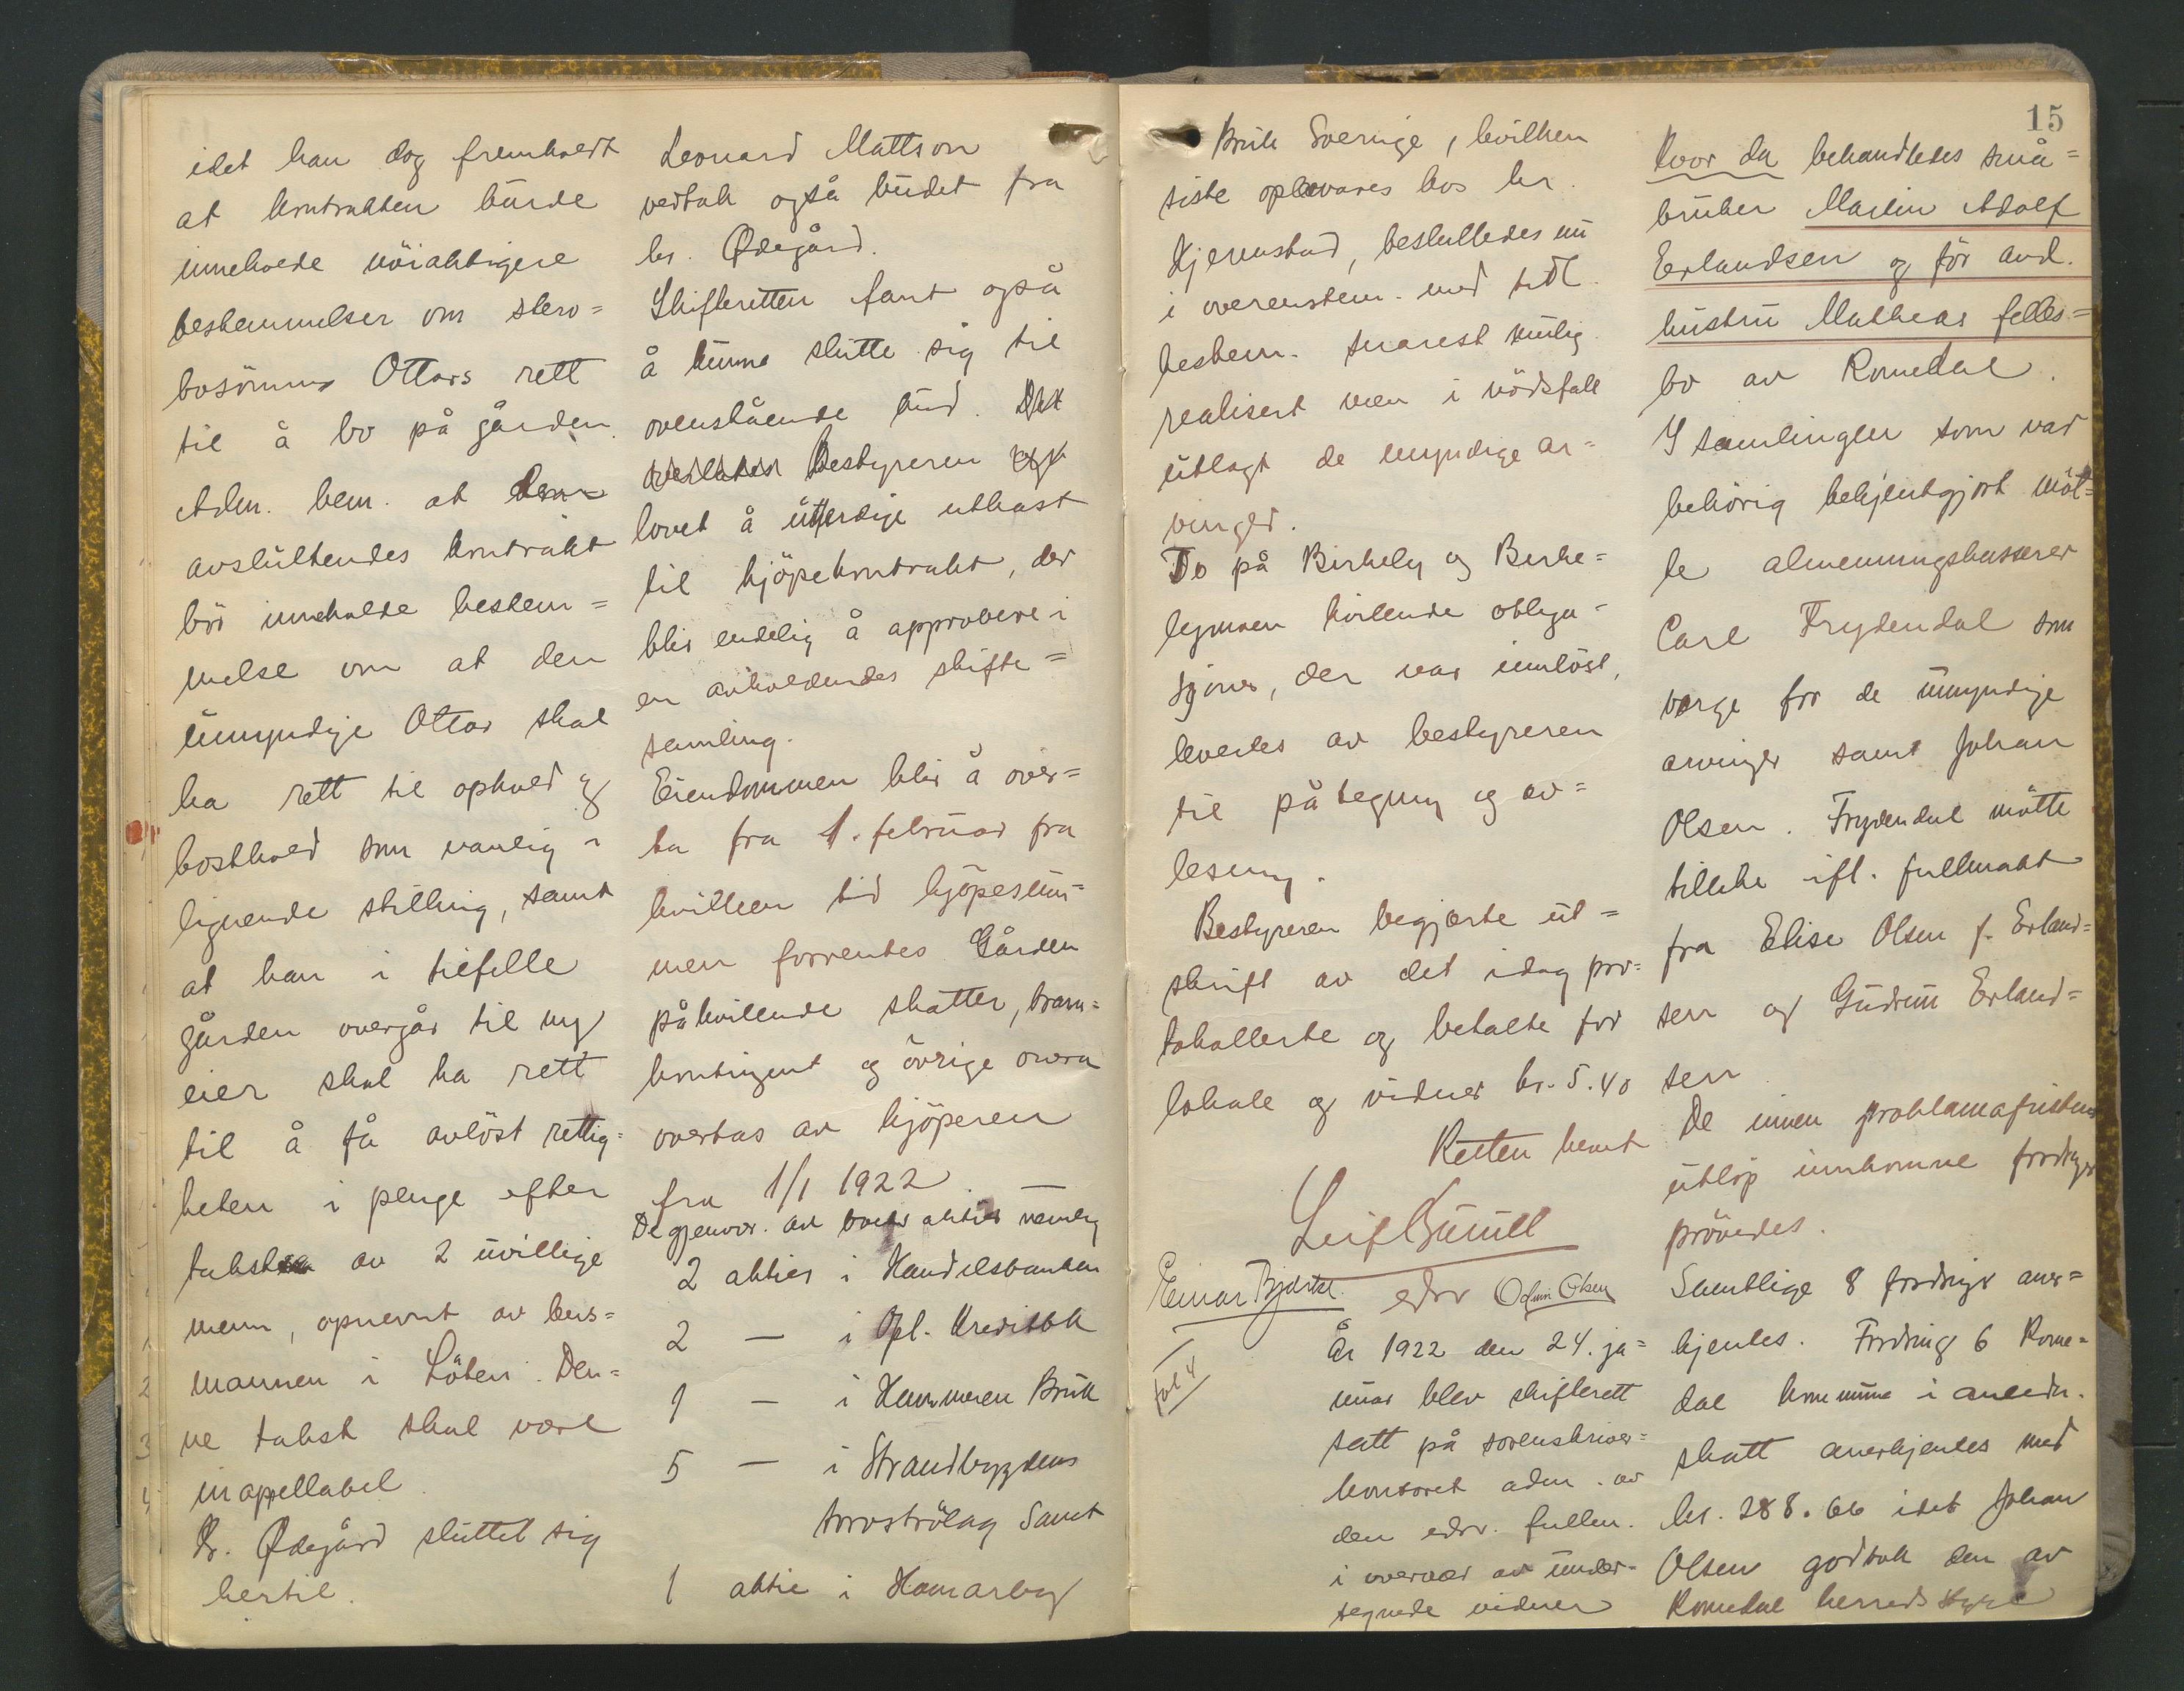 idet han dog fremholdt
at kontrakten burde
inneholde nöiaktigere
bestemmelser om
Ottars rett
til å bo på gården.
Adm. bem. at den
avsluttendes kontrakt
bör inneholde bestem=
melse om at den
umyndige Ottar skal
ha rett til ophold og
kosthold som vanlig i
lignende stilling, samt
at han i tilfelle
gården overgår til ny
eier skal ha rett
til å få avlöst rettig=
heten i penge efter
takst av 2 uvillige
menn, opnevnt av lens=
mannen i Löten. Den=
ne takst skal være
inapellabel.
Hr. Ödegård sluttet sig
hertil.
Leonard Mattson
vedtok også budet fra
hr. Ödegård.
Skifteretten fant også
å kunne slutte sig til
ovenstående bud.
Bestyreren
lovet å utferdige utkast
til kjöpekontrakt, der
blir endelig å approbere i
en avholdendes skifte=
samling.
Eiendommen blir å over=
ta fra 1. februar fra
hvilken tid kjöpesum=
men forrentes. Gården
påhvilende skatter, brann=
kontingent og övrige onera
overtas av kjöperen
fra 1/1 1922. —
De gjenvær. av boets aktier nemlig
2 aktier i Handelsbanken
2 — i Opl. Kreditbk
1 — i Hammeren Bruk
5 — i Strandbygdens
torvströlag samt
1 aktie i Hamarby
15
Bruk Sverige, hvilken
siste opbevares hos hr.
Kjernstad, besluttedes nu
i overenstem. med tidl.
bestem. snarest mulig
realisert men i nödsfall
utlagt de myndige ar=
vinger.
To på Birkely og Birke=
lymoen hvilende obliga=
sjoner, der var innlöst,
levertes av bestyreren
til påtegning og av=
lesning.
Bestyreren begjærte ut=
skrift av det idag pro=
tokollerte og betalte for
lokale og vidner kr. 5.40
Retten hevet
Einar Bjørke. edsv Odin Olsen
fol 4
År 1922 den 24. ja=
nuar blev skifterett
satt på sorenskriver=
kontoret adm. av
den edsv. fullm.
i overvær av under=
tegnede vidner
Hvor da behandledes små=
bruker Martin Adolf
Erlandsen og för avd.
hustru Matheas felles=
bo av Romedal.
I samlingen som var
behörig bekjentgjort möt=
te almenningskasserer
Carl Frydendal som
verge for de umyndige
arvinger samt Johan
Olsen. Frydendal mötte
tillike ifl. fullmakt
fra Elise Olsen f. Erland=
sen og Gudrun Erland=
sen
De innen proklamafristens
utlöp innkomne fordringer
prövedes.
Samtlige 8 fordringer aner=
kjentes. Fordring 6 Rome=
dal kommune i anledn.
skatt anerkjentes med
kr. 288.66 idet Johan
Olsen godtok den av
Romedal herredsstyre